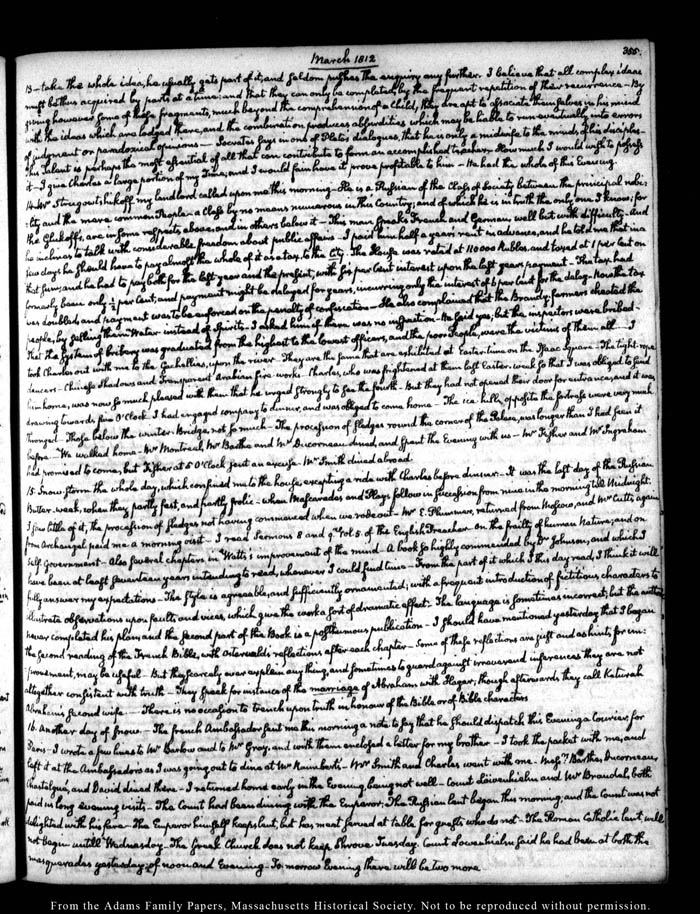 355.
March 1812
13 — take the whole idea, he usually gets part of it, and seldom pushes the enquiry any further. I believe that all complex ideas
must be thus acquired by parts at a time; and that they can only be completed, by the frequent repetition of their recurrence — By
giving however some of these fragments, much beyond the comprehension of a Child, they are apt to associate themselves in his mind
with the ideas which are lodged there, and the combination produces absurdities which may be liable to run eventually into errors
of judgment or paradoxical opinions — Socrates says in one of Plato's dialogues, that he is only a midwife to the minds of his disciples —
this talent is perhaps the most essential of all that can contribute to form an accomplished teacher. How much I would wish to possess
it — I give Charles a large portion of my Time, and I would fain have it prove profitable to him — He had the whole of this Evening
14. Mr Strugowshikoff, my landlord called upon me this morning — He is a Russian of the Class of Society between the principal nobi:
:lity and the mere common People — a Class by no means numerous in this Country; and of which he is in truth the only one I know; for
the are in some respects above, and in others below it — This man speaks French and German, well but with difficulty — And
he inclines to talk with considerable freedom about public affairs — I paid him half a year's rent in advance, and he told me that in a
few days he should have to pay almost the whole of it as a tax to the City. The House was rated at 110000 Rubles, and taxed at 1 per cent on
that sum; and he had to pay both for the last year and the present, with six per cent interest upon the last year's payment — The tax had
formerly been only ½ per cent, and payment might be delayed for years, incurring only the interest of 6 per cent for the delay. Now the tax
was doubled, and payment was to be enforced on the penalty of confiscation — He also complained that the Brandy-farmers cheated the
people, by selling them Water instead of Spirits. I asked him if there was no inspection — He said yes, but the inspectors were bribed —
that the system of bribery was graduated from the highest to the lowest officers, and the poor People, were the victims of them all — I
took Charles out with me to the upon the river — They are the same that are exhibited at Easter-time on the Isaac Square — The tight-rope
dancers — Chinese Shadows and Transparent Arabian fire-works. Charles, who was frightened at them last Easter-week so that I was obliged to send
him home, was now so much pleased with them that he urged strongly to see the fourth. But they had not opened their door for entrance, and it was
drawing towards five O'Clock. I had engaged company to dinner, and was obliged to come home — The ice-hills, opposite the fortress were very much
thronged — Those below the winter-Bridge, not so much — The procession of sledges round the corner of the Palace, was longer than I had seen it
before — We walked home — Mr Montreal, Mr Barthe and Mr Ducorneau dined, and spent the Evening with us — Mr Fisher and Mr Ingraham
had promised to come, but Fisher at 5 O'Clock sent an excuse — Mr Smith dined abroad.
15. Snow-storm the whole day, which confined me to the house, excepting a ride with Charles before dinner — It was the last day of the Russian
Butter-week, when they partly fast, and partly frolic — when Mascarades and Plays follow in succession from nine in the morning till Midnight.
I saw little of it, the procession of sledges not having commenced when we rode out — Mr E. Plummer, returned from Moscow, and Mr Cutts again
from Archangel, paid me a morning visit — I read Sermons 8 and 9. Vol. 5. of the English Preacher on the frailty of human Nature, and on
Self Government — Also several chapters in Watts's improvement of the mind — A book so highly commended by Dr Johnson, and which I
have been at least seventeen years intending to read, whenever I could find time — From the part of it which I this day read, I think it will
fully answer my expectations — The style is agreeable, and sufficiently ornamented; with a frequent introduction of fictitious characters to
illustrate observations upon faults and vices, which give the work a sort of dramatic effect. The language is sometimes incorrect; but the author
never completed his plan, and the second part of the Book is a posthumous publication — I should have mentioned yesterday that I began
the second reading of the French Bible, with Ostervald's reflections after each chapter — Some of these reflections are just and as hints, for im:
:provement, may be useful — But they scarcely ever explain any thing, and sometimes to guard against irreverend inferences they are not
altogether consistent with truth — They speak for instance of the marriage of Abraham with Hagar, though afterwards they call Keturah
Abraham's second wife — There is no occasion to trench upon truth in honour of the Bible or of Bible characters
16. Another day of snow — The french Ambassador sent me this morning a note to say that he should dispatch this Evening a Courier, for
Paris — I wrote a few lines to Mr Barlow and to Mr Gray, and with them enclosed a letter for my brother — I took the packet with me, and
left it at the Ambassador's as I was going out to dine at Mr Raimbert's — Mr Smith and Charles went with me. Messrs Barthe, Ducorneau,
and David dined there — I returned home early in the Evening, being not well — Count Löwenhielm and Mr Brandel, both
paid us long evening visits — The Count had been dining with the Emperor. The Russian lent began this morning, and the Count was not
delighted with his fare — The Emperor himself keeps lent, but has meat served at table for guests who do not — The Roman Catholic lent, will
not begin untill Wednesday — The Greek Church does not keep, Shrove Tuesday. Count Löwenhielm said he had been at both the
masquerades yesterday, of noon and Evening — To-morrow Evening there will be two more
From the Adams Family Papers, Massachusetts Historical Society. Not to be reproduced without permission.